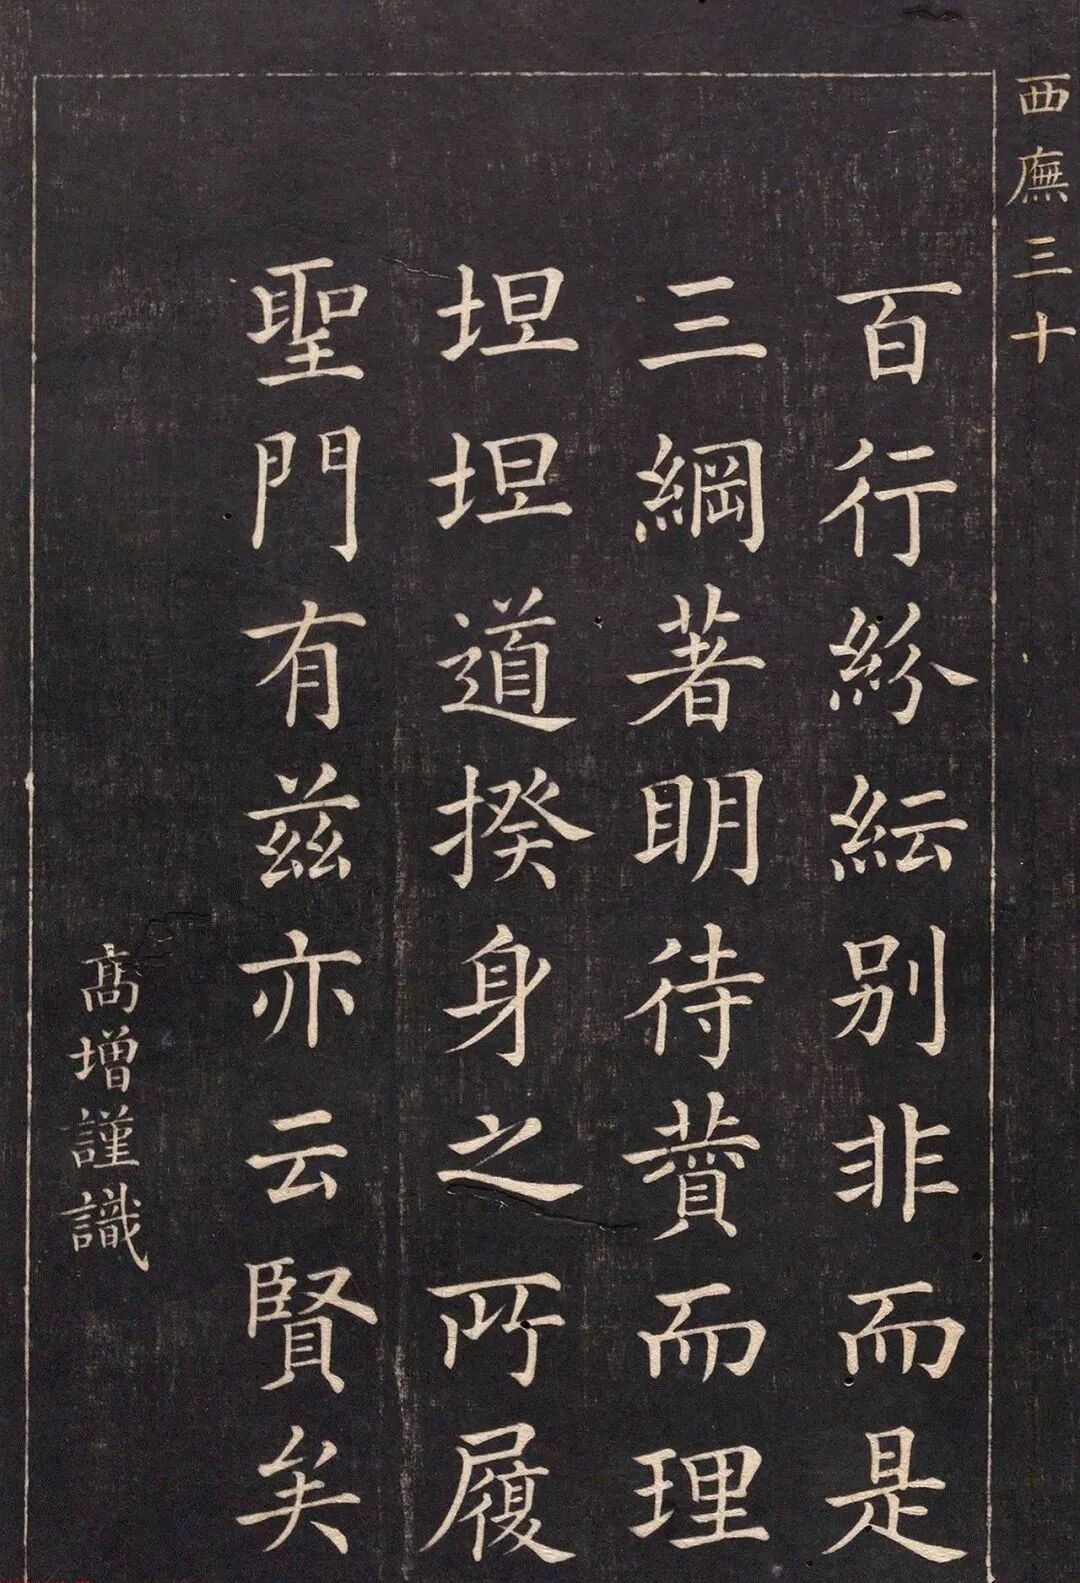 西廡三十
百行紛紜别非而是
三綱著明待賫而理
坦坦道揆身之所履
聖門有兹亦云賢矣
高增謹識